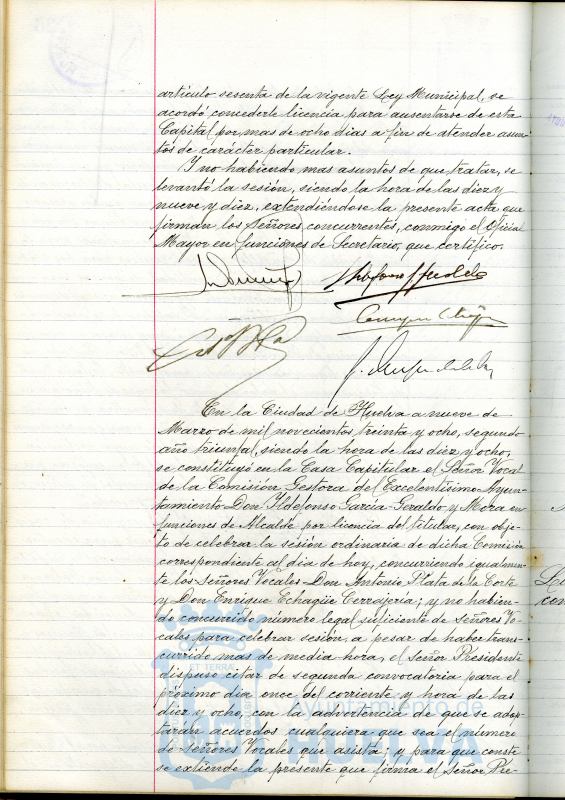 artículo sesenta de la vigente Ley Municipal, se
acordó concederle licencia para ausentarse de esta
Capital por mas de ocho dias a fin de atender asun-
tos de carácter particular.
Y no habiendo mas asuntos de que tratar, se
levantó la sesión, siendo la hora de las diez y
nueve y diez, extendiéndose la presente acta que
firman los Señores concurrentes, conmigo el Oficial
Mayor en funciones de Secretario, que certifico.
En la Ciudad de Huelva a nueve de
Marzo de mil novecientos treinta y ocho, segundo
año triunfal, siendo la hora de las diez y ocho,
se constituyó en la Casa Capitular el Señor Vocal
de la Comisión Gestora del Excelentísimo Ayun-
tamiento Don Ildefonso García-Geraldo y Mora en
funciones de Alcalde por licencia del titular, con obje-
to de celebrar la sesión ordinaria de dicha Comisión
correspondiente al dia de hoy, concurriendo igualmen-
te los Señores Vocales Don Antonio Plata de la Corte
y Don Enrique Echagüe Cerrajería; y no habien-
do concurrido número legal suficiente de Señores Vo-
cales para celebrar sesión, a pesar de haber trans-
currido mas de media hora, el Señor Presidente
dispuso citar de segunda convocatoria para el
próximo dia once del corriente y hora de las
diez y ocho, con la advertencia de que se adop-
tarian acuerdos cualquiera que sea el número
de Señores Vocales que asista; y para que conste
se extiende la presente que firma el Señor Pre-
ET TERRA
Ayuntamiento de
HUELVA